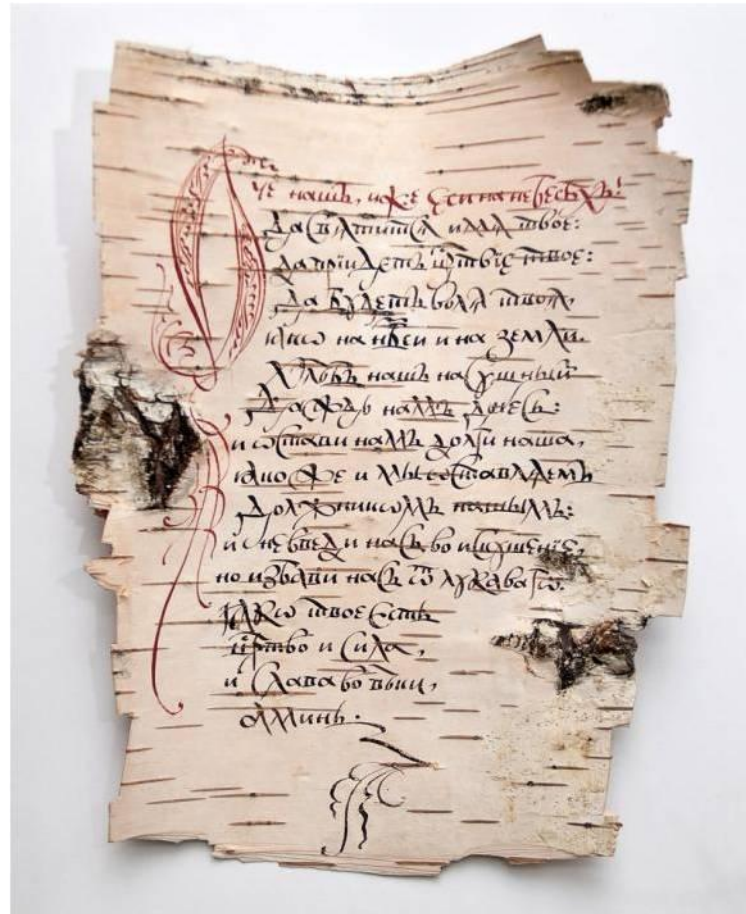 Отче нашъ, иже еси на небесѣхъ!
Да свѧтитсѧ имѧ твое:
да прїидетъ црⷭтвїе твое:
да бꙋдетъ волѧ твоѧ,
ꙗкѡ на нб҃си и на земли.
Хлѣбъ нашъ насꙋщный
даждь намъ днесь:
и ѡстави намъ долги наша,
ꙗкоже и мы ѡставлѧемъ
должникѡмъ нашымъ:
и не введи насъ во искꙋшенїе,
но избави насъ ѿ лꙋкавагѡ.
ꙗкѡ твое есть
црⷭтво и сила,
и слава во вѣки,
аминь.